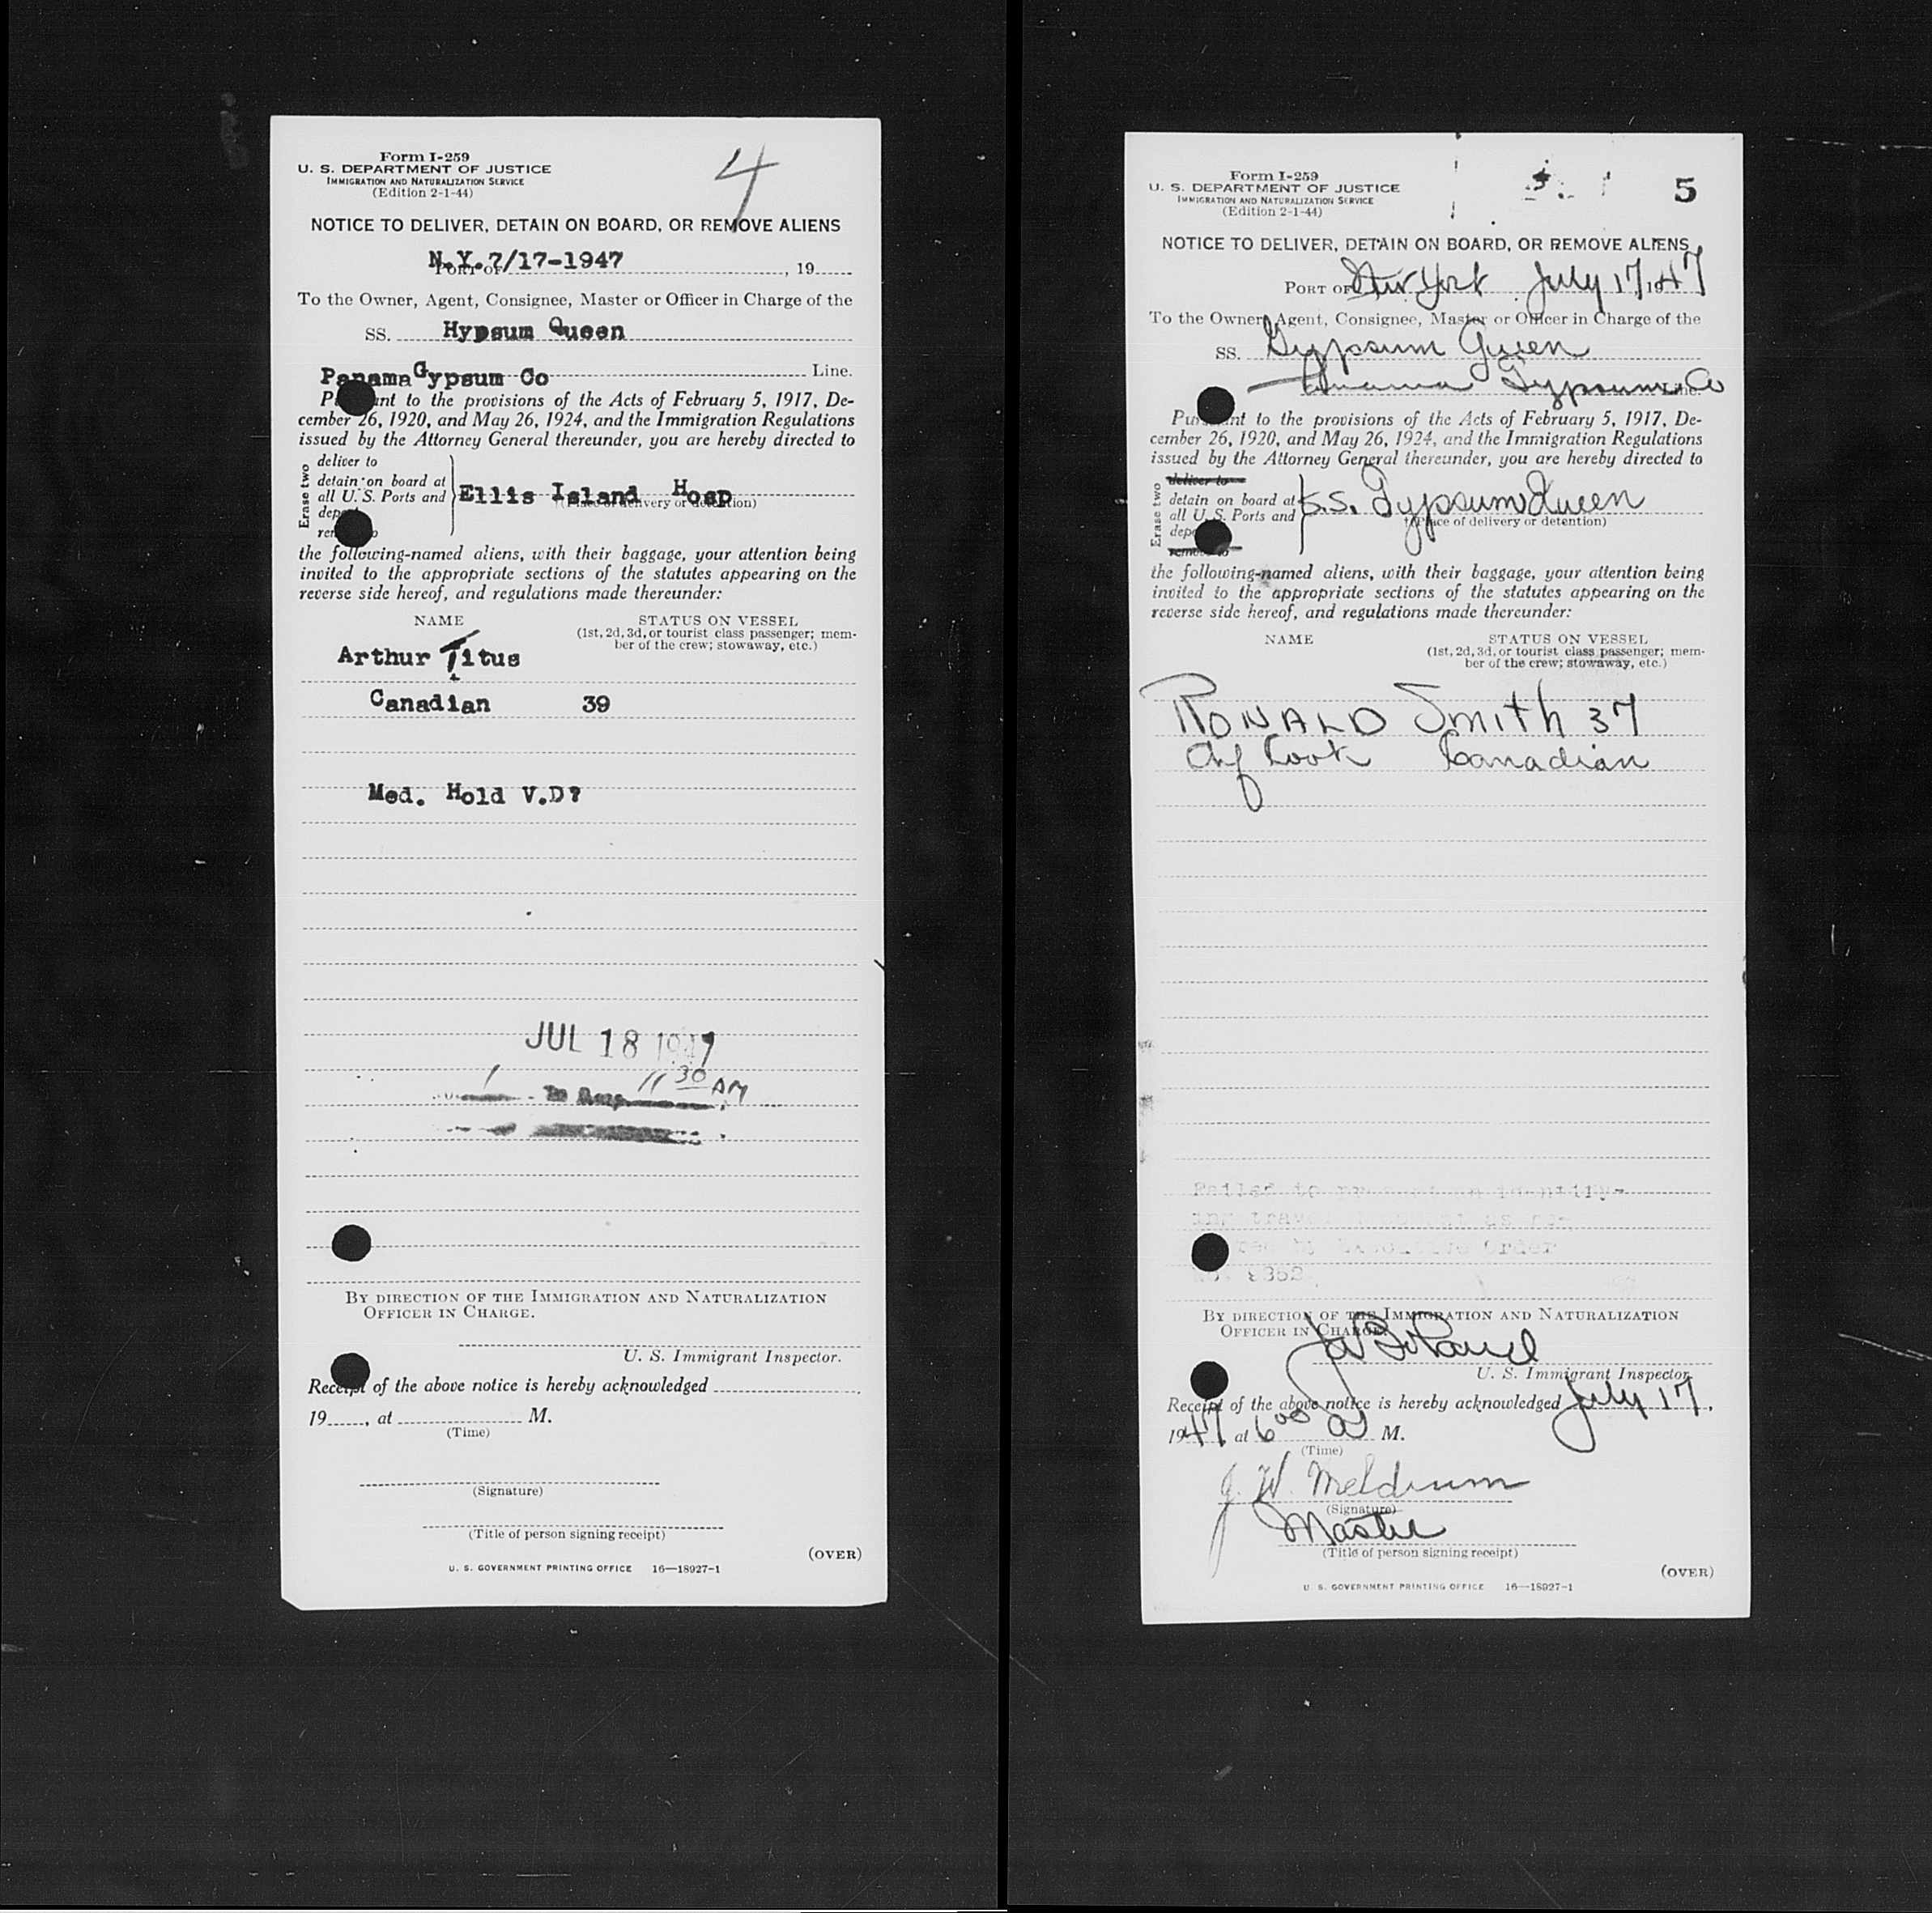 Form I-259
U. S. DEPARTMENT OF JUSTICE
IMMIGRATION AND NATURALIZATION SERVICE
(Edition 2-1-44)
4
NOTICE TO DELIVER, DETAIN ON BOARD, OR REMOVE ALIENS
PORT OF N.Y. 7/17-1947 , 19
To the Owner, Agent, Consignee, Master or Officer in Charge of the
SS. Hypsum Queen
Panama Gypsum Co Line.
nt to the provisions of the Acts of February 5, 1917, De-
cember 26, 1920, and May 26, 1924, and the Immigration Regulations
issued by the Attorney General thereunder, you are hereby directed to
Erase two
deliver to
detain on board at
all U. S. Ports and
Ellis Island Hosp
(Place of delivery or detention)
the following-named aliens, with their baggage, your attention being
invited to the appropriate sections of the statutes appearing on the
reverse side hereof, and regulations made thereunder:
NAME STATUS ON VESSEL
(1st, 2d, 3d, or tourist class passenger; mem-
ber of the crew; stowaway, etc.)
Arthur Titus
Canadian 39
Med. Hold V.D?
JUL 18 1947
11 30 AM
BY DIRECTION OF THE IMMIGRATION AND NATURALIZATION
OFFICER IN CHARGE.
U. S. Immigrant Inspector.
Receipt of the above notice is hereby acknowledged
19 , at M.
(Time)
(Signature)
(Title of person signing receipt)
(OVER)
U. S. GOVERNMENT PRINTING OFFICE 16—18927-1
Form I-259
U. S. DEPARTMENT OF JUSTICE
IMMIGRATION AND NATURALIZATION SERVICE
(Edition 2-1-44)
5
NOTICE TO DELIVER, DETAIN ON BOARD, OR REMOVE ALIENS
PORT OF New York July 17, 1947
To the Owner, Agent, Consignee, Master or Officer in Charge of the
SS. Gypsum Queen
Panama Gypsum Co
nt to the provisions of the Acts of February 5, 1917, De-
cember 26, 1920, and May 26, 1924, and the Immigration Regulations
issued by the Attorney General thereunder, you are hereby directed to
Erase two
deliver to
detain on board at
all U. S. Ports and
S.S. Gypsum Queen
(Place of delivery or detention)
remove to
the following-named aliens, with their baggage, your attention being
invited to the appropriate sections of the statutes appearing on the
reverse side hereof, and regulations made thereunder:
NAME STATUS ON VESSEL
(1st, 2d, 3d, or tourist class passenger; mem-
ber of the crew; stowaway, etc.)
RONALD Smith 37
Chf Cook Canadian
Failed to
travel
Executive Order
No. 9352
BY DIRECTION OF THE IMMIGRATION AND NATURALIZATION
OFFICER IN CHARGE.
U. S. Immigrant Inspector.
Receipt of the above notice is hereby acknowledged July 17,
1947, at 6 00 a M.
(Time)
J. W. Meldrum
(Signature)
Master
(Title of person signing receipt)
(OVER)
U. S. GOVERNMENT PRINTING OFFICE 16—18927-1